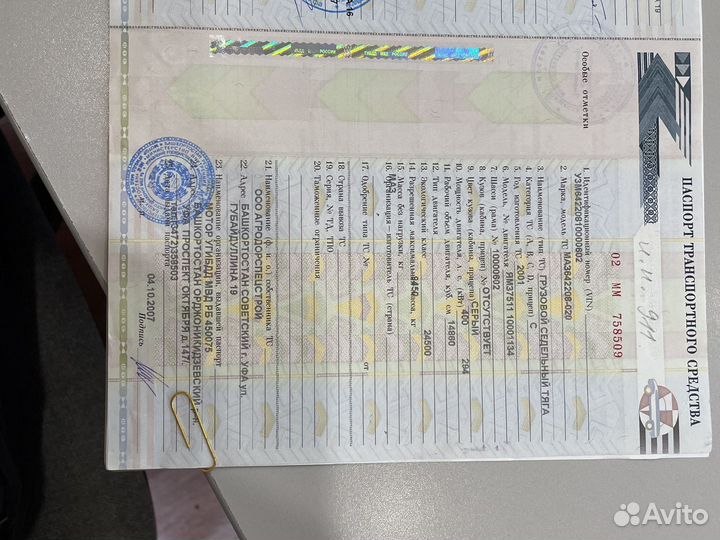 ПАСПОРТ ТРАНСПОРТНОГО СРЕДСТВА
02 ММ 758509
И.Н. 911
1. Идентификационный номер (VIN)
УЗМ64220810000602
2. Марка, модель ТС МАЗ642208-020
3. Наименование (тип ТС) ГРУЗОВОЙ СЕДЕЛЬНЫЙ ТЯГА
4. Категория ТС (А, В, С, D, прицеп) С
5. Год изготовления ТС 2001
6. Модель, № двигателя ЯМЗ7511 10001134
7. Шасси (рама) № 10000602
8. Кузов (кабина, прицеп) № ОТСУТСТВУЕТ
9. Цвет кузова (кабины, прицепа) СЕРЫЙ
10. Мощность двигателя, л. с. (кВт) 400 294
11. Рабочий объем двигателя, куб. см 14860
12. Тип двигателя
13. Экологический класс
14. Разрешенная максимальная масса, кг 24500
15. Масса без нагрузки, кг 9450
16. Организация – изготовитель ТС (страна)
МАЗ
17. Одобрение типа ТС № от
18. Страна вывоза ТС
19. Серия, № ТД, ТПО
20. Таможенные ограничения
21. Наименование (ф. и. о.) собственника ТС
ООО АГРОДОРСПЕЦСТРОЙ
22. Адрес БАШКОРТОСТАН СОВЕТСКИЙ г.УФА ул.
ГУБАЙДУЛЛИНА 19
23. Наименование организации, выдавшей паспорт
МОТОР УГИБДД МВД РБ 450075
24. Адрес БАШКОРТОСТАН ОРДЖОНИКИДЗЕВСКИЙ
УФА Г ПРОСПЕКТ ОКТЯБРЯ д.147/
ТЕЛ(3472)359503
04.10.2007
Подпись
Особые отметки
Avito